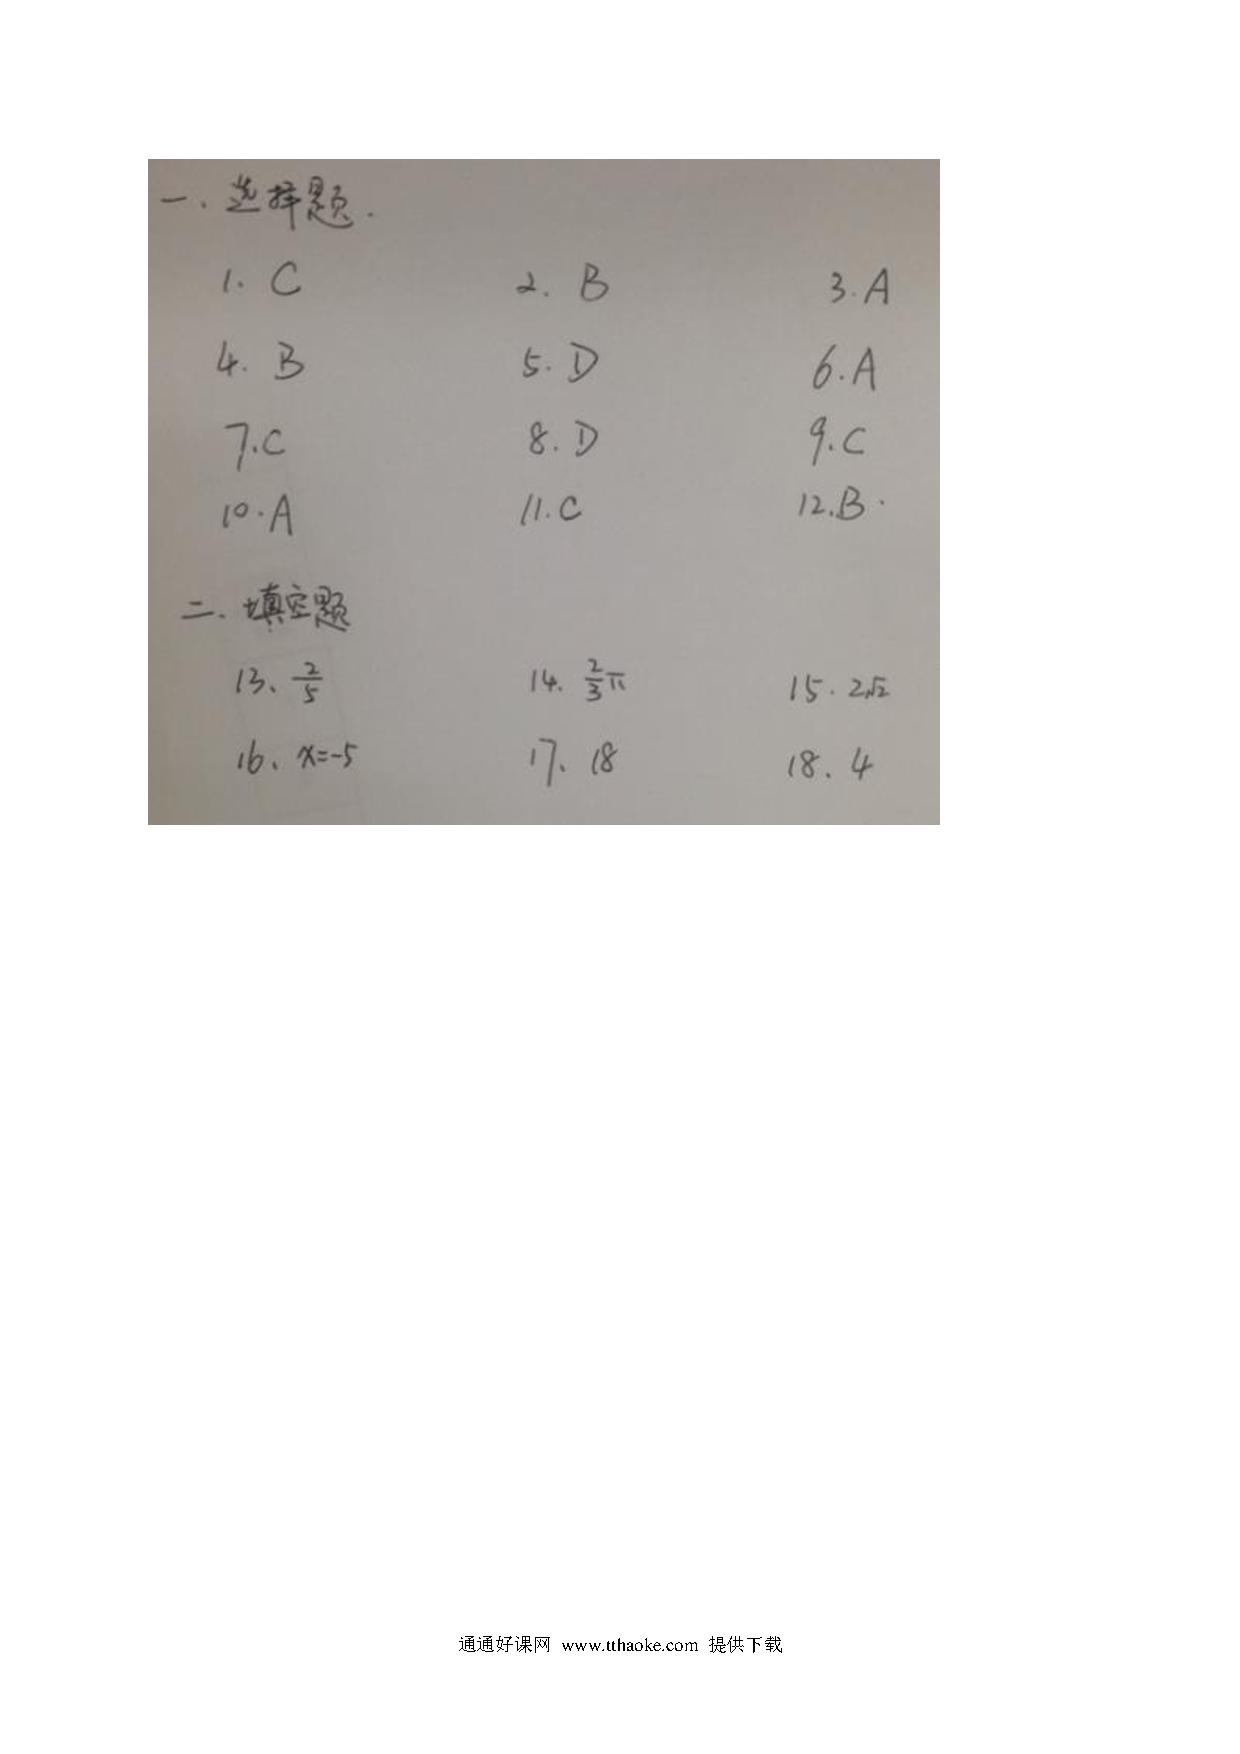 一、选择题.
1. C 2. B 3. A
4. B 5. D 6. A
7. C 8. D 9. C
10. A 11. C 12. B.
二、填空题
13、2/5 14、2/3π 15. 2√2
16、x=-5 17、18 18、4
通通好课网 www.tthaoke.com 提供下载